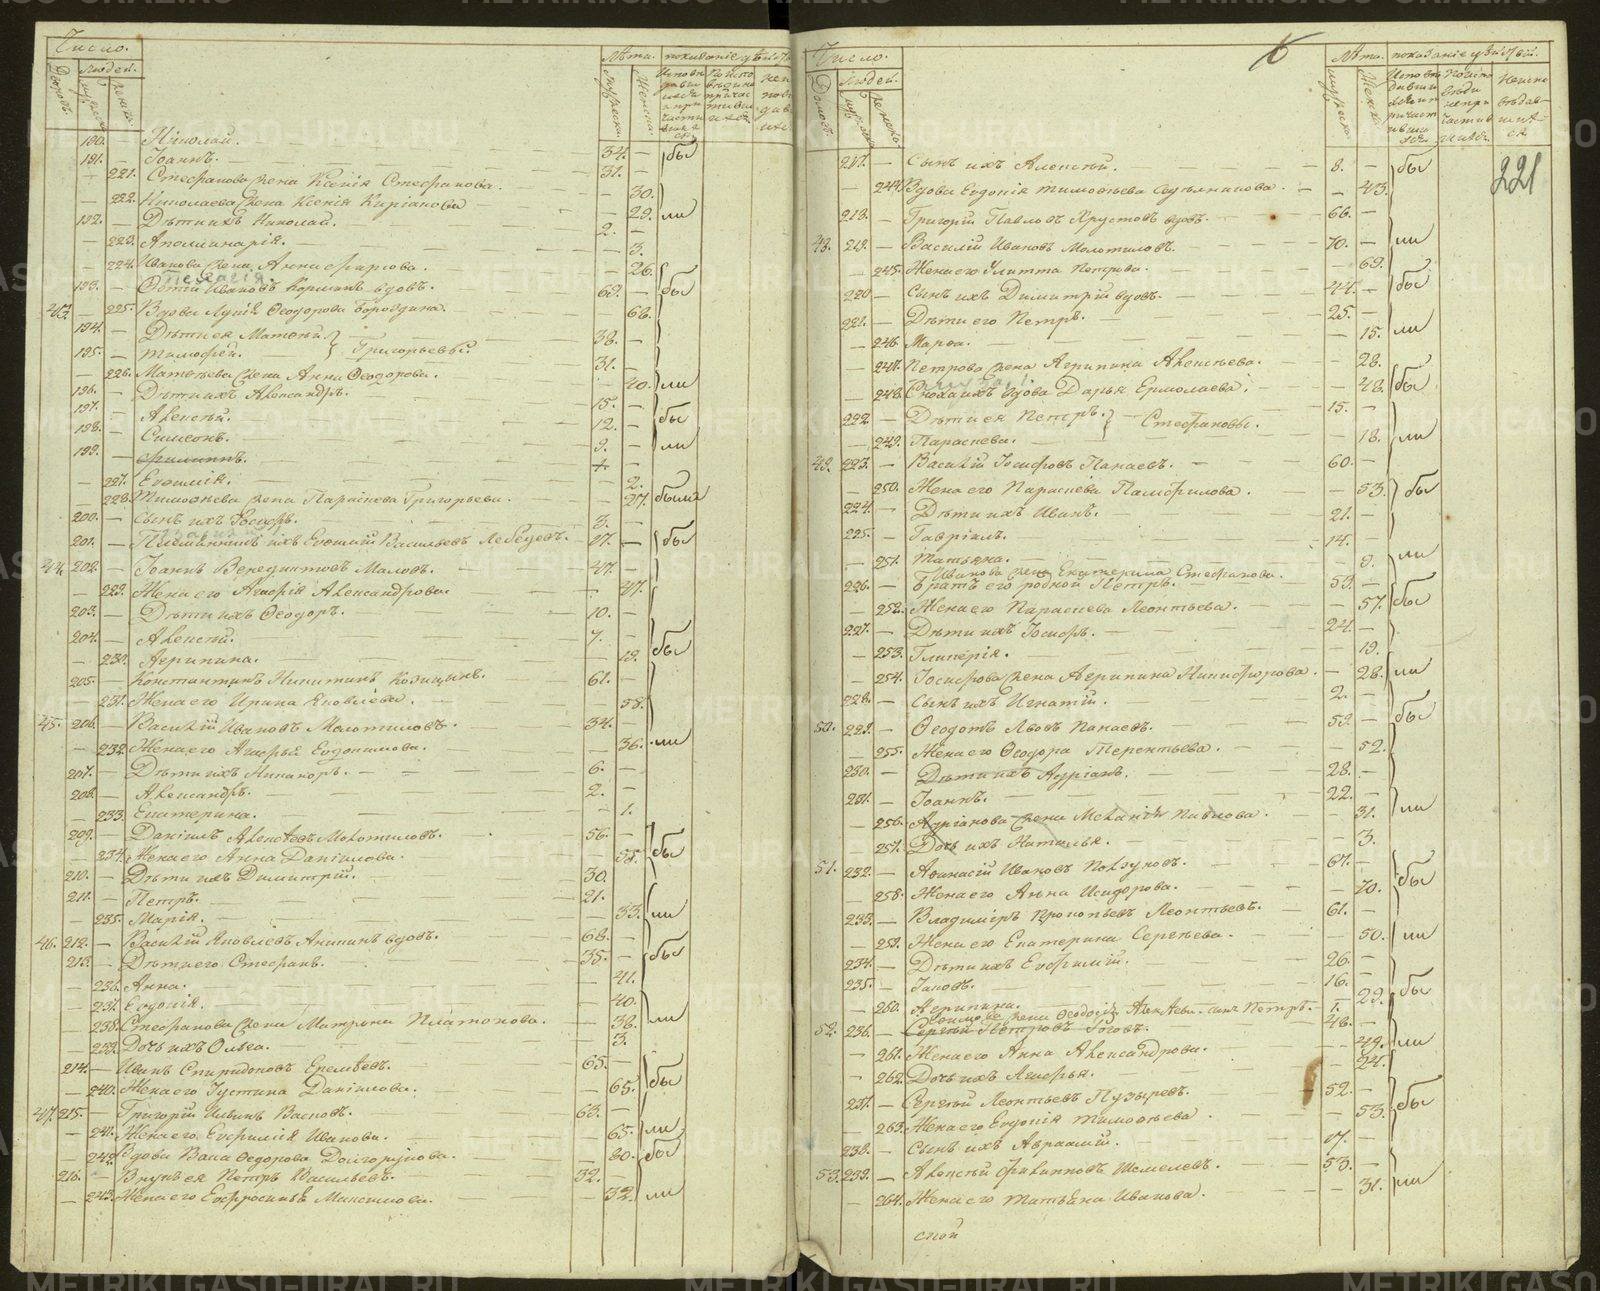 Число.
Людей.
Лѣта.
190. — Николай. 34. —
191. — Іоаннъ. 31. — } бы
— 221. Стефанова жена Ксенія Стефанова. — 30.
— 222. Николаева жена Ксенія Киріанова — 29. } ли
192. — Дѣти ихъ Николай. 2. —
— 223. Аполинарія. — 3.
— 224. Иванова жена Анна — 26.
193. — Иванов вдовъ. 69. — } бы
43. — 225. Вдова Ѳеодорова Бороздина. — 68.
194. — Дѣти ея Матѳей 38. —
195. — Тимофей. } Григорьевы. 31. —
— 226. Матѳѣева жена Анна Ѳеодорова. — 40. } ли
196. — Дѣти ихъ Александръ. 15. —
197. — Алексѣй. 12. — } бы
198. — Симеонъ. 9. — } ли
199. — Филиппъ. + —
— 227. Евѳимія. — 2.
— 228. Тимоѳеева жена Параскева Григорьева. — 27. была
200. — Сынъ ихъ Іосифъ. 3. —
201. — Племянникъ ихъ Евѳимій Васильевъ Лебедевъ. 17. — } бы
44. 202. — Іоаннъ Венедиктовъ Маловъ. 47. —
— 229. Жена его Агафія Александрова. — 47.
203. — Дѣти ихъ Ѳеодоръ. 10. —
204. — Алексѣй. 7. —
— 230. Агрипина. — 19. } бы
205. — Константинъ Никитинъ 61. —
— 231. Жена его Ирина Яковлева. — 58.
45. 206. — Василій Ивановъ Молотиловъ. 34. —
— 232. Жена его Агафья Евдокимова. — 36. ли
207. — Дѣти ихъ Никаноръ. 6. —
208. — Александръ. 2. —
— 233. Екатерина. — 1.
209. — Даніилъ Алексѣевъ Молотиловъ. 56. —
— 234. Жена его Анна Даніилова. — 55. } бы
210. — Дѣти ихъ Димитрій. 30. —
211. — Петръ. 21. —
— 235. Марія. — 33. } ли
46. 212. — Василій Яковлевъ Аникинъ вдовъ. 68. —
213. — Дѣти его Стефанъ. 35. — } бы
— 236. Анна. — 41.
— 237. Евдокія. — 40.
— 238. Стефанова жена Матрона Платонова. — 38. } ли
— 239. Дочь ихъ Ольга. — 3.
214. — Иванъ Спиридоновъ Еремѣевъ. 65. —
— 240. Жена его Іустина Даніилова. — 65. } бы
47. 215. — Григорій 63. —
— 241. Жена его Евфимія Иванова. — 65. } ли
— 242. Вдова Ѳедорова Долгорукова. — 80. } бы
216. — Внукъ ея Петръ Васильевъ. 32. —
— 243. Жена его Евфросинья Максимова. — 32. } ли
Число.
Людей.
Лѣта.
16
221
217. — Сынъ ихъ Алексѣй. 8. — } бы
— 244. Вдова Евдокія Тимоѳѣева — 43.
218. — Григорій Павловъ Хрустовъ вдовъ. 66. —
48. 219. — Василій Ивановъ Молотиловъ. 70. — } ли
— 245. Жена его Улитта Петрова. — 69.
220. — Сынъ ихъ Димитрій вдовъ. 44. — } бы
221. — Дѣти его Петръ. 25. —
— 246. Марѳа. — 15. } ли
— 247. Петрова жена Агрипина Алексѣева. — 28.
— 248. Сноха ихъ вдова Дарья Ермолаева. — 48. } бы
222. — Дѣти ея Петръ. 15. —
— 249. Параскева. } Стефановы. — 18. } ли
49. 223. — Василій Іосифовъ Панаевъ. 60. —
— 250. Жена его Параскева Памфилова. — 53. } бы
224. — Дѣти ихъ Иванъ. 21. —
225. — Гавріилъ. 14. —
— 251. Татьяна. — 9. } ли
Иванова жена Екатерина Стефанова.
226. — Братъ его родной Петръ. 59. —
— 252. Жена его Параскева Леонтьева. — 57. } бы
227. — Дѣти ихъ Іосифъ. 24. —
— 253. Гликерія. — 19.
— 254. Іосифова жена Агрипина Никифорова. — 28. } ли
228. — Сынъ ихъ Игнатій. 2. —
50. 229. — Ѳеодотъ Львовъ Панаевъ. 59. — } бы
— 255. Жена его Ѳеодора Терентьева. — 52.
230. — Дѣти ихъ Адріанъ. 28. —
231. — Іоаннъ. 22. —
— 256. Адріанова жена Меланія Павлова. — 31. } ли
— 257. Дочь ихъ Наталья. — 3.
51. 232. — Аѳанасій Ивановъ Ползуновъ. 67. —
— 258. Жена его Анна Исидорова. — 70. } бы
233. — Владиміръ Прокопьевъ Леонтьевъ. 61. —
— 259. Жена его Екатерина Сергѣева. — 50. } ли
234. — Дѣти ихъ Евфимій. 26. —
235. — Іаковъ. 16. —
— 260. Агрипина. — 29. } бы
жена Ѳеодосія Алексѣева. сынъ Петръ. 1.
52. 236. — Сергѣй Петровъ 48. —
— 261. Жена его Анна Александрова. — 49. } ли
— 262. Дочь ихъ Агафья. — 24.
237. — Сергѣй Леонтьевъ Пузыревъ. 52. —
— 263. Жена его Евдокія Тимоѳѣева. — 53. } бы
238. — Сынъ ихъ Авраамій. 17. —
53. 239. — Алексѣй Филипповъ Шемелевъ. 53. —
— 264. Жена его Татьяна Иванова. — 31. } ли
ской
METRIKI.GASO-URAL.RU